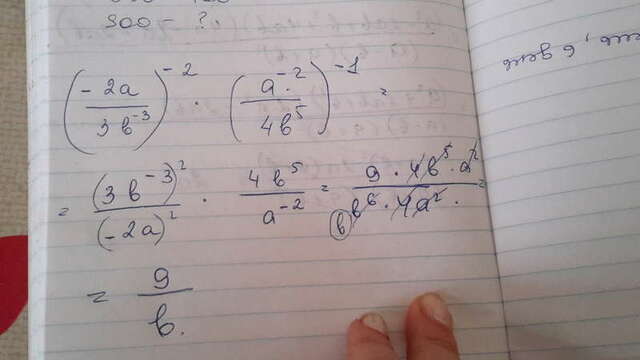 300 - ?
(-2a / 3b⁻³)⁻² · (a⁻² / 4b⁵)⁻¹ =
= (3b⁻³)² / (-2a)² · 4b⁵ / a⁻² = 9 · 4b⁵ · a² / b⁶ · 4a² · =
b
= 9 / b.